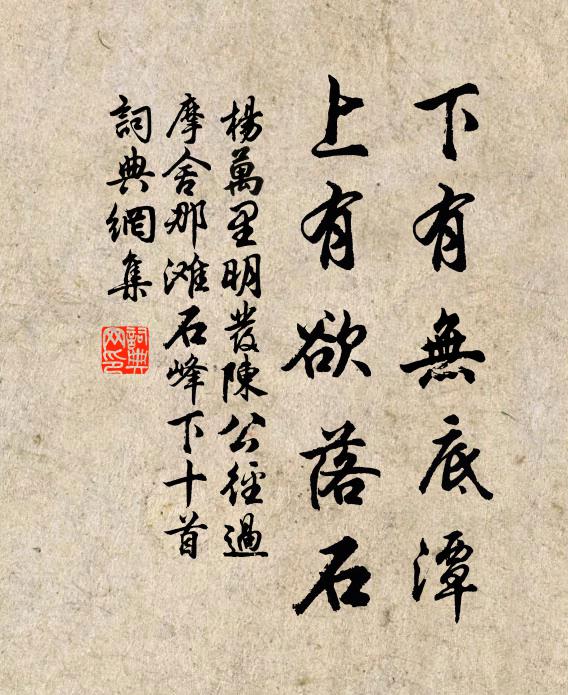 下有無底潭
上有欲落石
楊萬里明發陳公徑過
摩舍那滩石峰下十首
詞典網集
詞典
网印